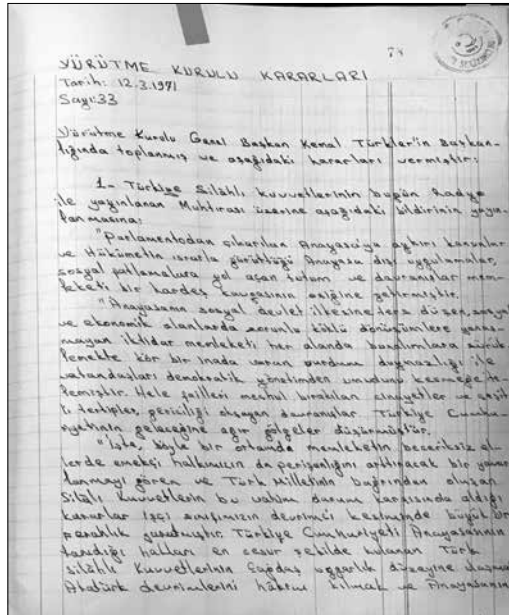 78
YÜRÜTME KURULU KARARLARI
Tarih: 12.3.1971
Sayı:33
Yürütme Kurulu Genel Başkan Kemal Türkler'in Başkan-
lığında toplanmış ve aşağıdaki kararları vermiştir:
1- Türkiye Silâhlı Kuvvetlerinin bugün Radyo
ile yayınlanan Muhtırası üzerine aşağıdaki bildirinin yayın-
lanmasına:
"Parlamentodan çıkarılan Anayasa'ya aykırı kanunlar
ve Hükümetin ısrarla yürüttüğü Anayasa dışı uygulamalar,
sosyal patlamalara yol açan tutum ve davranışlar mem-
leketi bir kardeş kavgasının eşiğine getirmiştir.
"Anayasanın sosyal devlet ilkesine ters düzen, sosyal
ve ekonomik alanlarda zorunlu köklü dönüşümlere yanaş-
mayan iktidar memleketi her alanda bunalımlara sürük-
lemekte kör bir inada varan vurdum duymazlığı ile
vatandaşları demokratik yönetimden umudunu kesmeye it-
lemiştir. Hele failleri meçhul bırakılan cinayetler ve çeşit-
li tertipler, gericiliği okşayan davranışlar Türkiye Cumhu-
riyetinin geleceğine ağır gölgeler düşürmüştür.
"İşte, böyle bir ortamda memleketin beceriksiz el-
lerde emekçi halkımızın da perişanlığını arttıracak bir
gören ve Türk Milletinin bağrından oluşan
Silâhlı Kuvvetlerin bu vahim durum karşısında aldığı
kararlar işçi sınıfımızın devrimci kesiminde büyük bir
ferahlık yaratmıştır. Türkiye Cumhuriyeti Anayasasının
tanıdığı hakları en cesur şekilde kullanan Türk
Silâhlı Kuvvetlerinin Çağdaş uygarlık düzeyine ulaşma
Atatürk devrimlerini hâkim kılmak ve Anayasanın